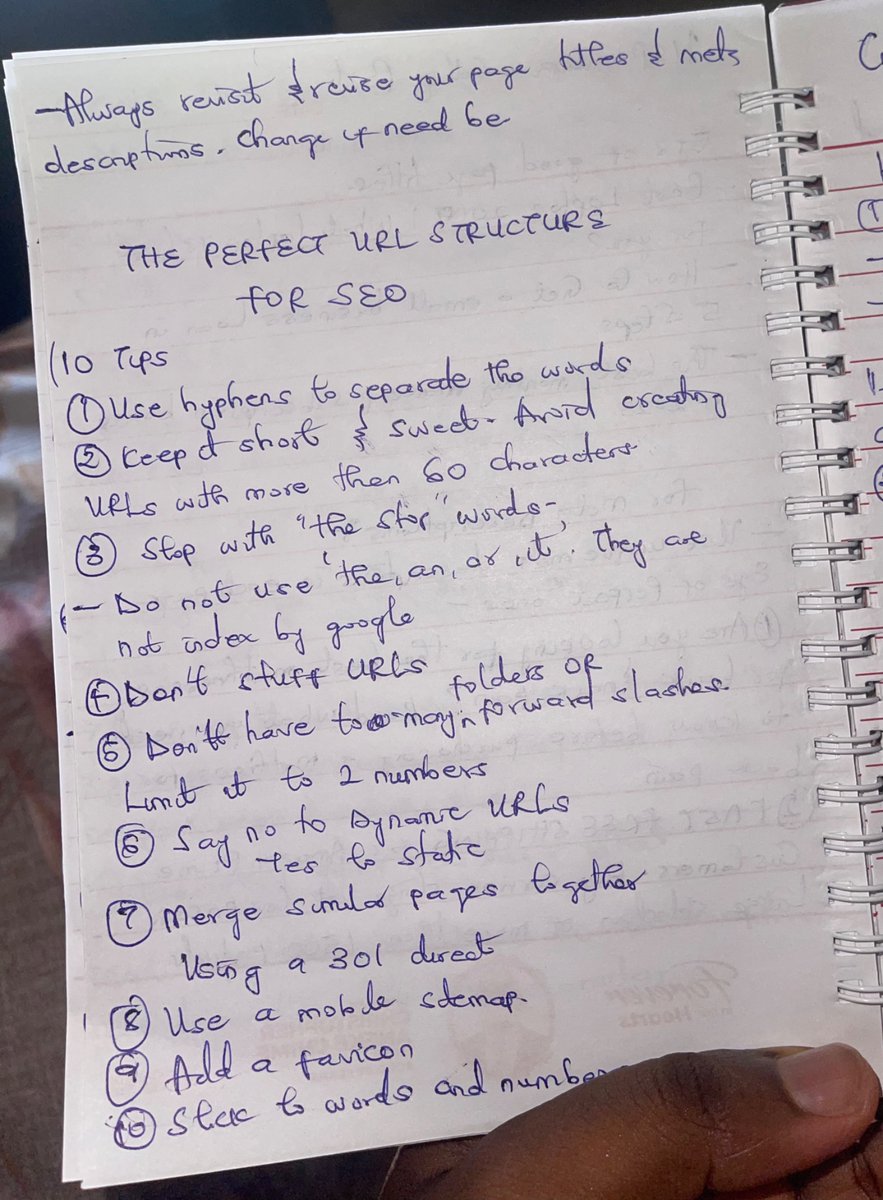 -Always revisit & revise your page titles & meta
descriptions. Change if need be
THE PERFECT URL STRUCTURE
FOR SEO
10 Tips
① Use hyphens to separate the words
② Keep it short & sweet. Avoid creating
URLs with more then 60 characters
③ Stop with "the stop" words-,
- Do not use 'the, an, or, it'. They are
not index by google
④ Don't stuff URLs
⑤ Don't have too many folders or forward slashes.
Limit it to 2 numbers
⑥ Say no to Dynamic URLs
Yes to static
⑦ Merge similar pages together
Using a 301 direct
⑧ Use a mobile sitemap.
⑨ Add a favicon
⑩ Stick to words and number